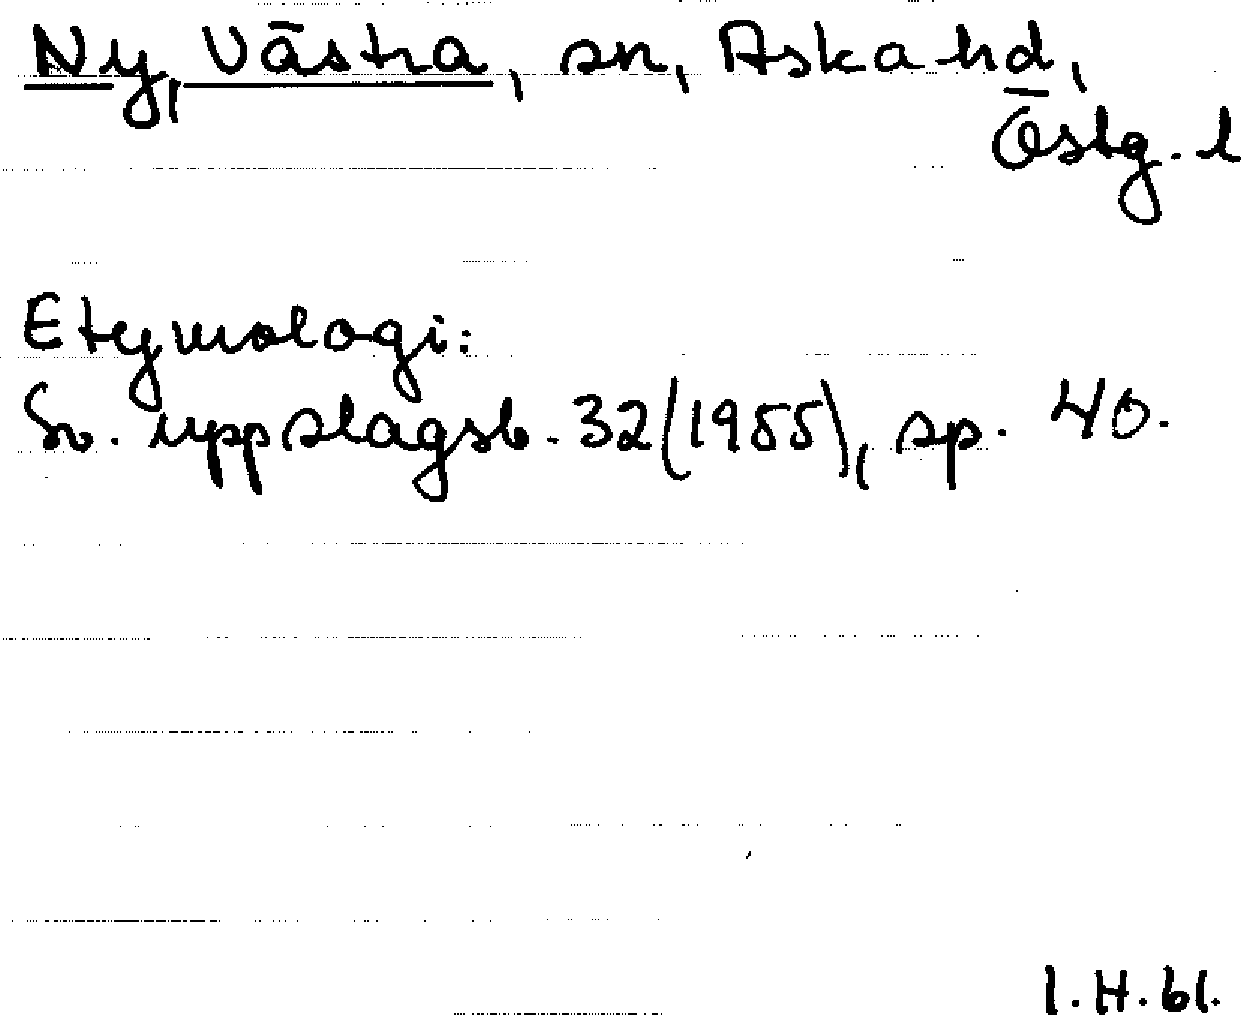 Ny, Västra, sn, Aska hd,
Östg. l
Etymologi:
Sv. uppslagsb. 32 (1955), sp. 40.
I.H. 61.